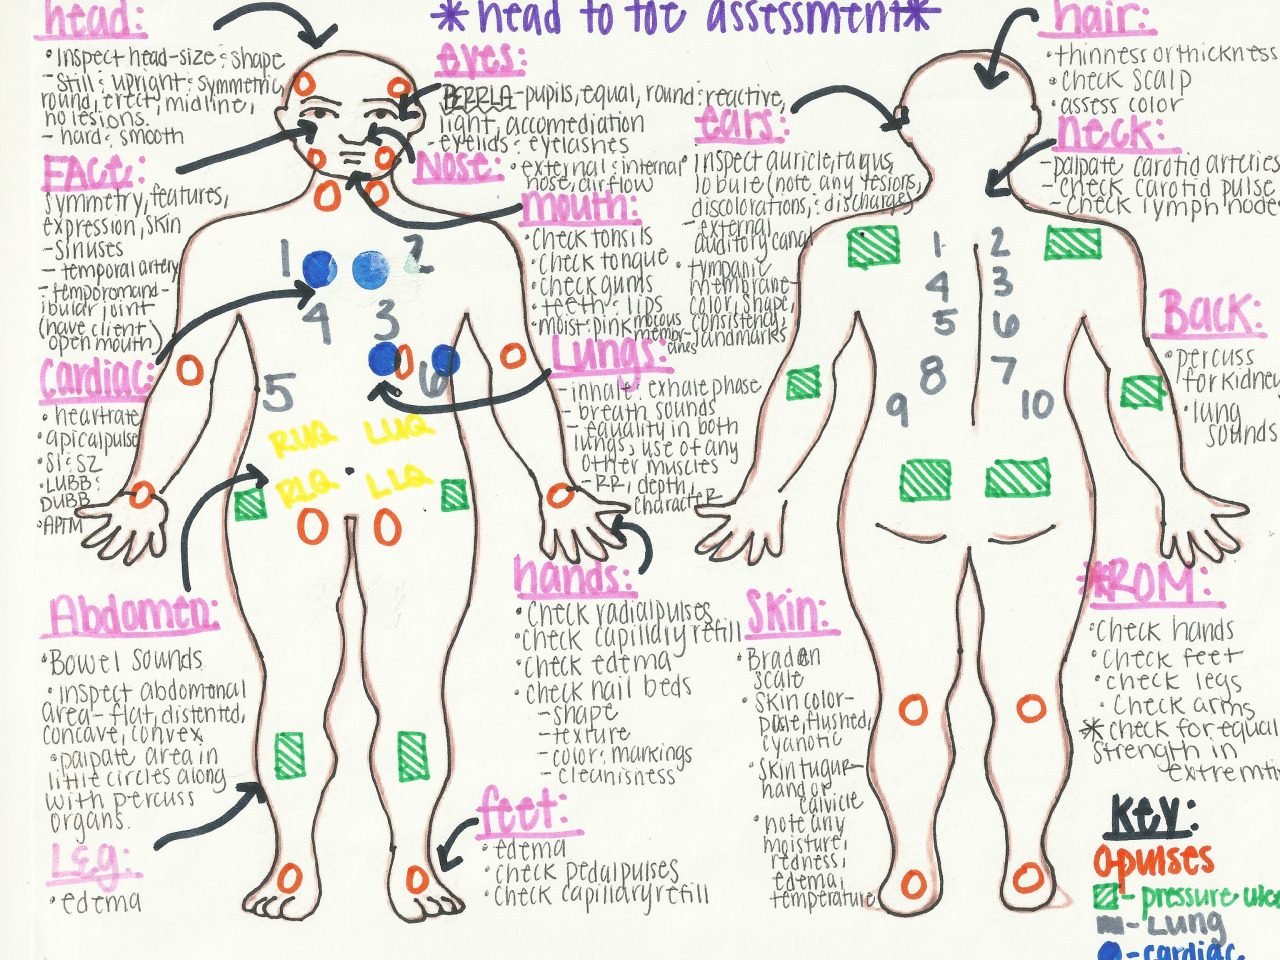 *head to toe assessment*
head:
•Inspect head-size & shape
-Still & upright & symmetric,
round, erect, midline,
no lesions.
- hard & smooth
Face:
symmetry, features,
expression, skin
- Sinuses
- temporal artery
- temporomand-
ibular joint
(have client
open mouth)
Cardiac:
• heartrate
• apical pulse
•S1 & S2
•LUBB &
DUBB
•APTM
Abdomen:
•Bowel sounds
• inspect abdomenal
area- flat, distented,
concave, convex
•palpate area in
little circles along
with percuss
organs.
Leg:
• edema
eyes:
PERRLA-pupils, equal, round & reactive,
light, accomediation
- eyelids & eyelashes
Nose:
• external & internal
nose, airflow
mouth:
•Check tonsils
•check tongue
•check gums
•teeth & lips
•moist & pink mucus
membr-
anes
Lungs:
- inhale & exhale phase
- breath sounds
- equality in both
lungs & use of any
other muscles
- RR, depth,
character
hands:
•Check radial pulses
•check capillary refill
•check edema
•check nail beds
-shape
-texture
-color & markings
-cleanisness
feet:
• edema
• check pedal pulses
• check capillary refill
1 2
4 3
5 6
RUQ LUQ
RLQ LLQ
ears:
• inspect auricle, tragus,
lobule (note any lesions,
discolorations, & discharges)
- external
auditory canal
• tympanic
membrane-
color, shape,
consistency,
landmarks
hair:
•thinness or thickness
•check scalp
•assess color
neck:
-palpate carotid arteries
-Check carotid pulse
-Check lymph nodes
1 2
4 3
5 6
8 7
9 10
Back:
•percuss
for kidney
•lung
sounds
Skin:
•Braden
scale
•Skin color-
pale, flushed,
cyanotic
•Skin tugur-
hand or
calvicle
•note any
moisture,
redness,
edema,
temperature
*ROM:
•Check hands
•Check feet
•check legs
•Check arms
*check for equal
strength in
extremti
Key:
O-pulses
- pressure ulce
- Lung
-cardiac